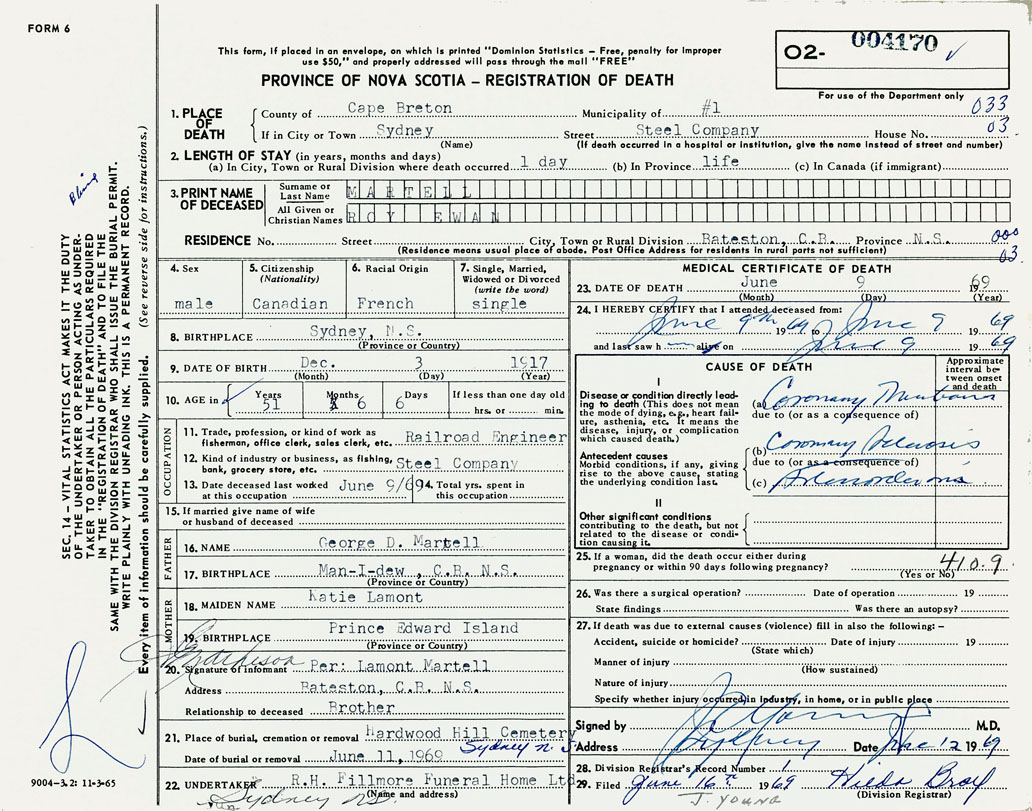 FORM 6
This form, if placed in an envelope, on which is printed "Dominion Statistics – Free, penalty for improper
use $50," and properly addressed will pass through the mail "FREE"
PROVINCE OF NOVA SCOTIA – REGISTRATION OF DEATH
O2- 004170
For use of the Department only
033
03.
1. PLACE OF DEATH
County of Cape Breton Municipality of #1
If in City or Town Sydney Street Steel Company House No.
(Name) (If death occurred in a hospital or institution, give the name instead of street and number)
2. LENGTH OF STAY (in years, months and days)
(a) In City, Town or Rural Division where death occurred 1 day (b) In Province life (c) In Canada (if immigrant)
3. PRINT NAME OF DECEASED
Surname or Last Name MARTELL
All Given or Christian Names ROY EWAN
RESIDENCE No. Street City, Town or Rural Division Bateston, C.B. Province N.S. 000
(Residence means usual place of abode. Post Office Address for residents in rural parts not sufficient) 03.
4. Sex
male
5. Citizenship
(Nationality)
Canadian
6. Racial Origin
French
7. Single, Married,
Widowed or Divorced
(write the word)
single
8. BIRTHPLACE Sydney, N.S.
(Province or Country)
9. DATE OF BIRTH Dec. 3 1917
(Month) (Day) (Year)
10. AGE in Years Months Days If less than one day old
51 6 6 hrs. or min.
OCCUPATION
11. Trade, profession, or kind of work as
fisherman, office clerk, sales clerk, etc. Railroad Engineer
12. Kind of industry or business, as fishing,
bank, grocery store, etc. Steel Company
13. Date deceased last worked
at this occupation June 9/69
14. Total yrs. spent in
this occupation
15. If married give name of wife
or husband of deceased
FATHER
16. NAME George D. Martell
17. BIRTHPLACE Man-I-dew, C.B. N.S.
(Province or Country)
MOTHER
18. MAIDEN NAME Katie Lamont
19. BIRTHPLACE Prince Edward Island
(Province or Country)
20. Signature of informant Per: Lamont Martell
Address Bateston, C.B. N.S.
Relationship to deceased Brother
21. Place of burial, cremation or removal Hardwood Hill Cemetery
Sydney N.S
Date of burial or removal June 11, 1969
22. UNDERTAKER R.H. Fillmore Funeral Home Ltd
(Name and address)
Sydney N.S.
MEDICAL CERTIFICATE OF DEATH
23. DATE OF DEATH June 9 1969
(Month) (Day) (Year)
24. I HEREBY CERTIFY that I attended deceased from:
June 9th 1969 to June 9 1969
and last saw h alive on June 9 1969
CAUSE OF DEATH
Approximate interval between onset and death
I
Disease or condition directly leading to death (This does not mean
the mode of dying, e.g., heart failure, asthenia, etc. It means the
disease, injury, or complication
which caused death.)
(a) Coronary
due to (or as a consequence of)
Antecedent causes
Morbid conditions, if any, giving
rise to the above cause, stating
the underlying condition last.
(b) Coronary Sclerosis
due to (or as a consequence of)
(c)
II
Other significant conditions
contributing to the death, but not
related to the disease or condition causing it.
25. If a woman, did the death occur either during
pregnancy or within 90 days following pregnancy? 410.9
(Yes or No)
26. Was there a surgical operation? Date of operation 19
State findings Was there an autopsy?
27. If death was due to external causes (violence) fill in also the following: –
Accident, suicide or homicide? Date of injury 19
(State which)
Manner of injury
(How sustained)
Nature of injury
Specify whether injury occurred in industry, in home, or in public place
Signed by Young M.D.
Address Sydney Date June 12 1969
28. Division Registrar's Record Number
29. Filed June 16th 1969 Hilda
J. YOUNG (Division Registrar)
SEC. 14 – VITAL STATISTICS ACT MAKES IT THE DUTY
OF THE UNDERTAKER OR PERSON ACTING AS UNDER-
TAKER TO OBTAIN ALL THE PARTICULARS REQUIRED
IN THE "REGISTRATION OF DEATH" AND TO FILE THE
SAME WITH THE DIVISION REGISTRAR WHO SHALL ISSUE THE BURIAL PERMIT.
WRITE PLAINLY WITH UNFADING INK. THIS IS A PERMANENT RECORD.
Every item of information should be carefully supplied. (See reverse side for instructions.)
9004-3.2: 11-3-65